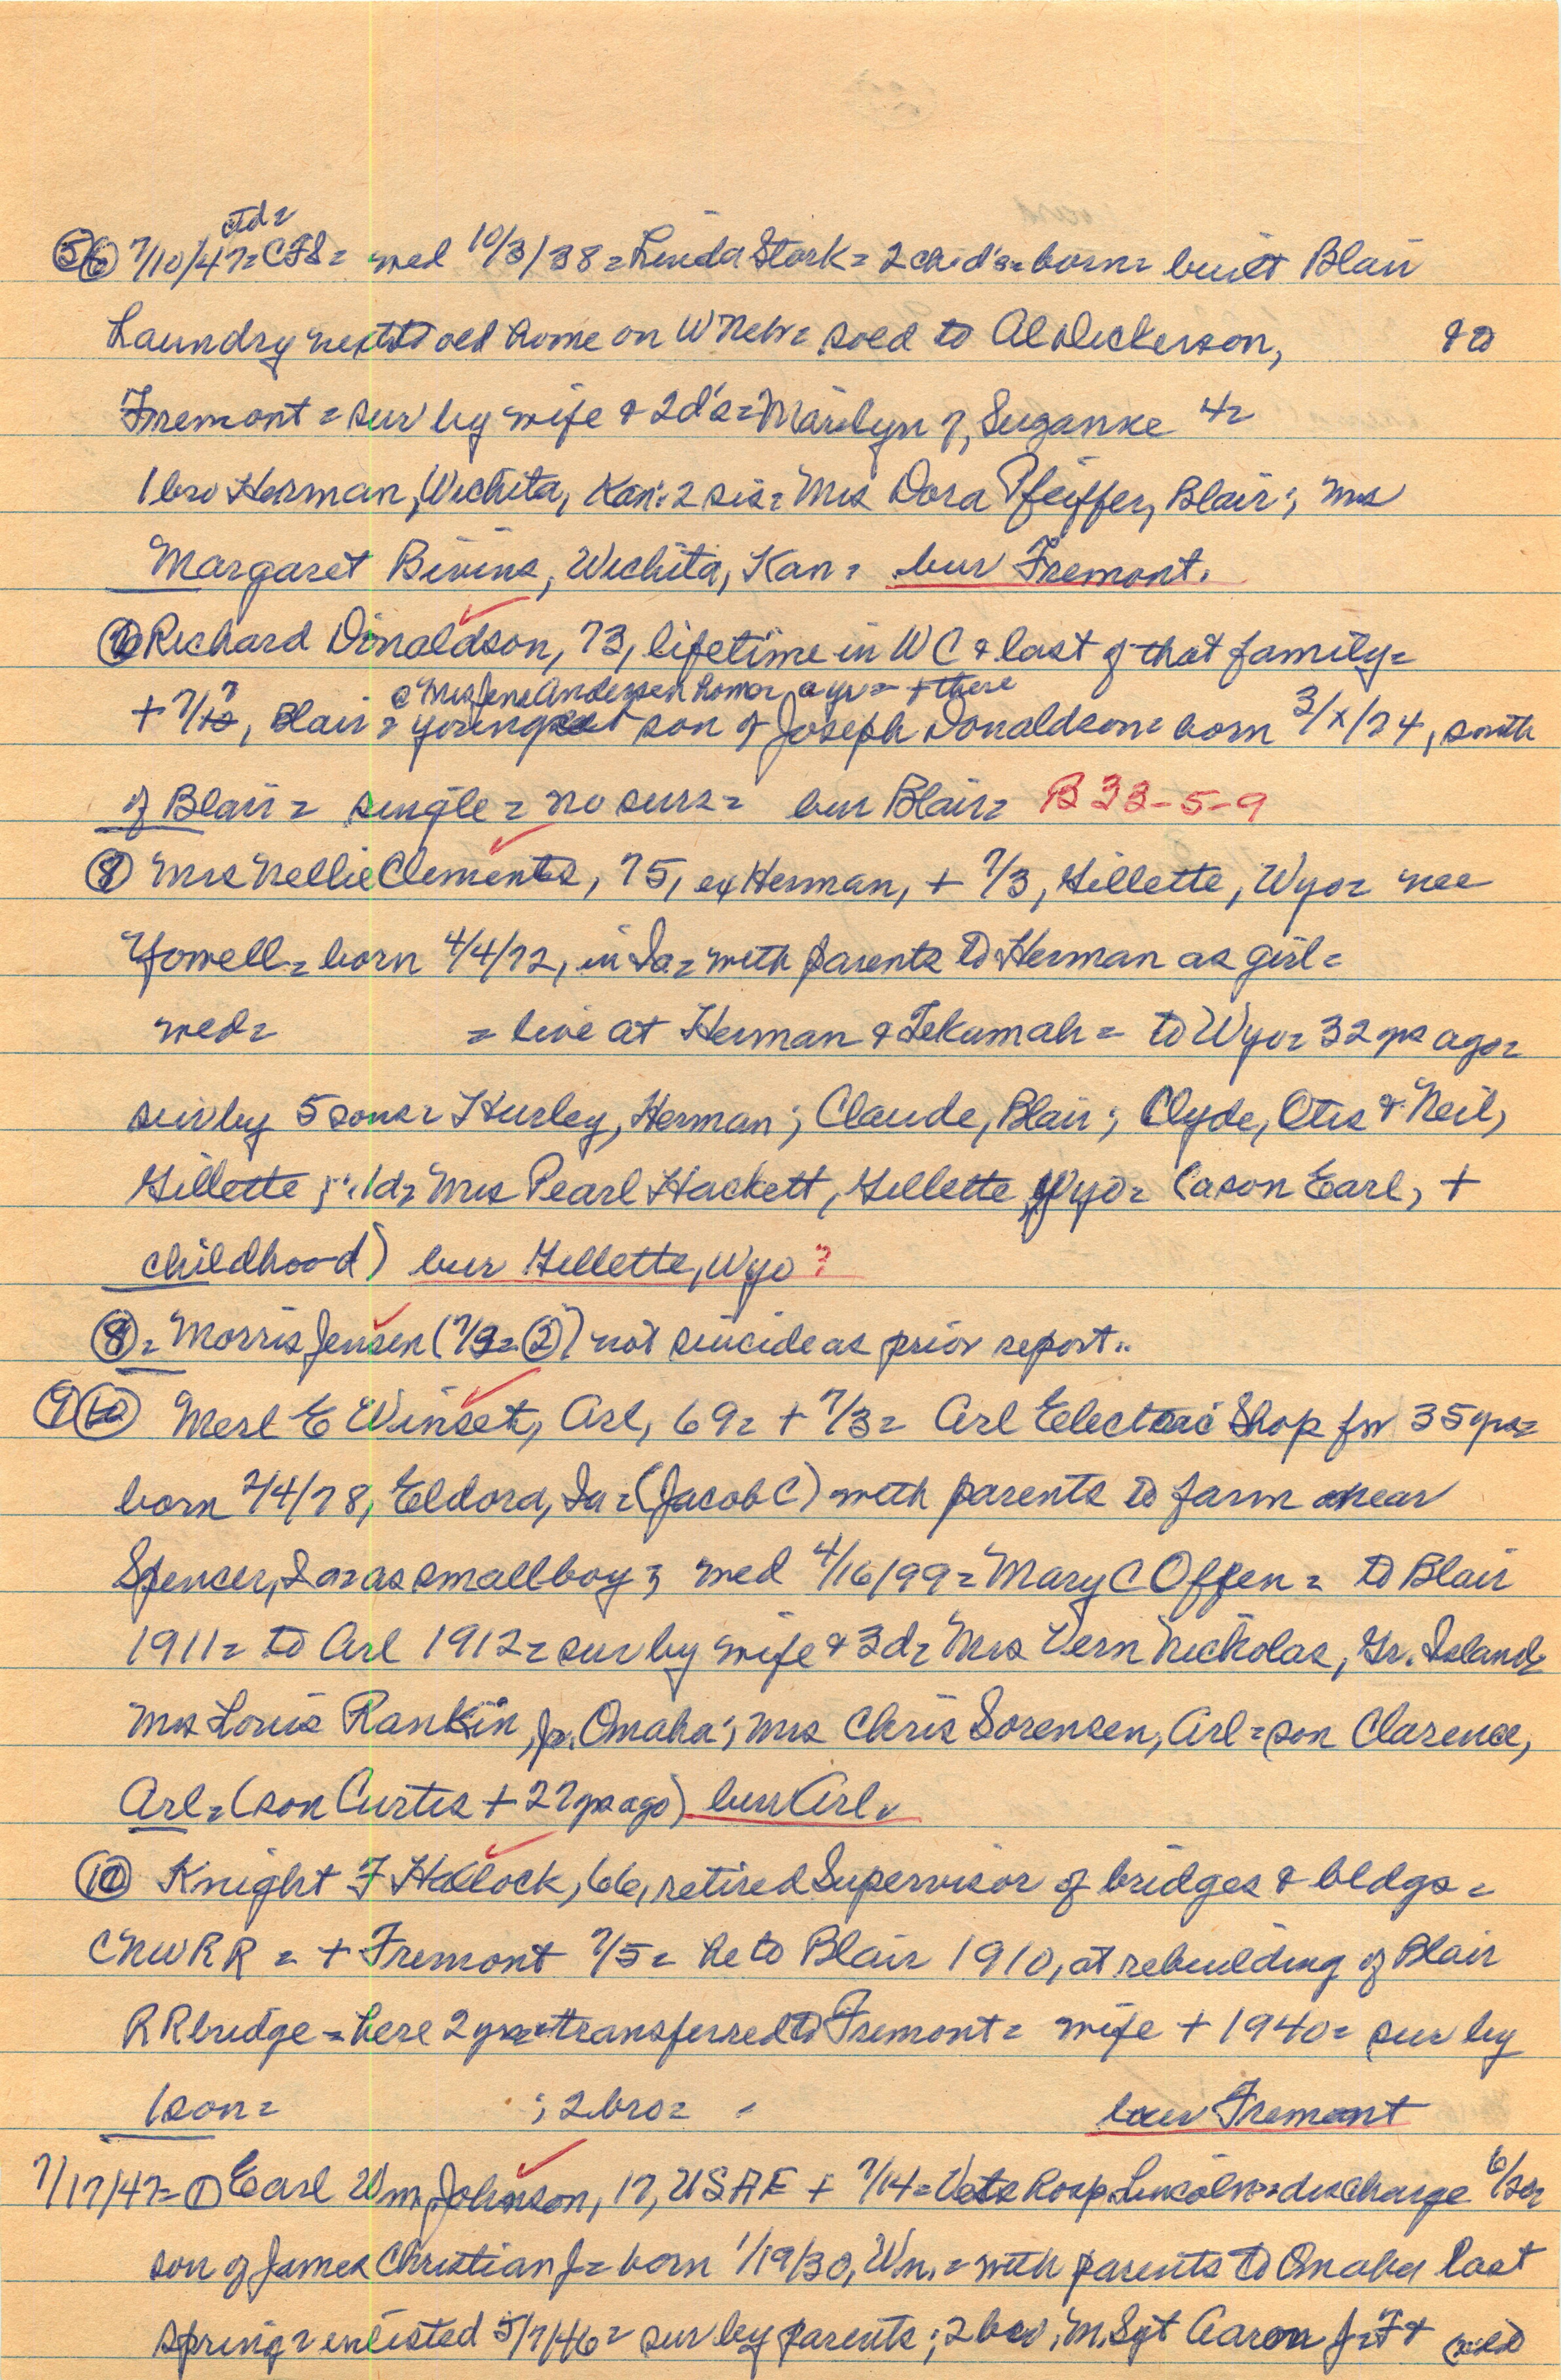 ctd=
⑤⑥ 7/10/47= CFS= wed 10/3/38= Linda Stork= 2 chid's= born= built Blair
Laundry next to old home on W Neb= sold to Al Dickerson, & to
Fremont= sur by wife & 2 d's= Marilyn 7, Suzanne 4=
1 bro Herman, Wichita, Kan: 2 sis= Mrs Dora Pfeiffer, Blair; Mrs
Margaret Bivins, Wichita, Kan= bur Fremont.
Richard Donaldson, 73, lifetime in W C & last of that family=
@ Mrs Jene Andersen home a yr= + there
+ 7/7, Blair= youngest son of Joseph Donaldson= born 3/x/74, south
of Blair= single= no surs= bur Blair= B 33-5-9
⑧ Mrs Nellie Clements, 75, ex Herman, + 7/3, Gillette, Wyo= nee
Yowell= born 4/4/72, in Ia= with parents to Herman as girl=
wed= = live at Herman & Tekamah= to Wyo= 32 yrs ago=
sur by 5 sons= Hurley, Herman; Claude, Blair; Clyde, Otis & Neil,
Gillette; 1 d= Mrs Pearl Hackett, Gillette, Wyo= (a son Earl, +
childhood) bur Gillette, Wyo?
⑧= Morris Jensen (7/3= ②) not suicide as prior report..
⑨⑩ Merl E Winset, Arl, 69= + 7/3= Arl Electric Shop for 35 yrs=
born 2/4/78, Eldora, Ia= (Jacob C) with parents to farm near
Spencer, Ia= as small boy; wed 4/16/99= Mary C Offen= to Blair
1911= to Arl 1912= sur by wife & 3 d= Mrs Vern Nickolas, Gr. Island;
Mrs Louis Rankin, Jr. Omaha; Mrs Chris Sorensen, Arl= son Clarence,
Arl= (son Curtis + 27 yrs ago) bur Arl.
⑩ Knight F Hallock, 66, retired Supervisor of bridges & bldgs=
CNWRR= + Fremont 7/5= he to Blair 1910, at rebuilding of Blair
RR bridge= here 2 yrs= transferred to Fremont= wife + 1940= sur by
1 son= ; 2 bro= bur Fremont
7/17/47= ① Earl Wm Johnson, 17, USAF + 7/14= Vets Hosp Lincoln= discharge
son of James Christian J= born 1/19/30, Wn.= with parents to Omaha last
spring= enlisted 5/7/46= sur by parents; 2 bro; M. Sgt Aaron J=